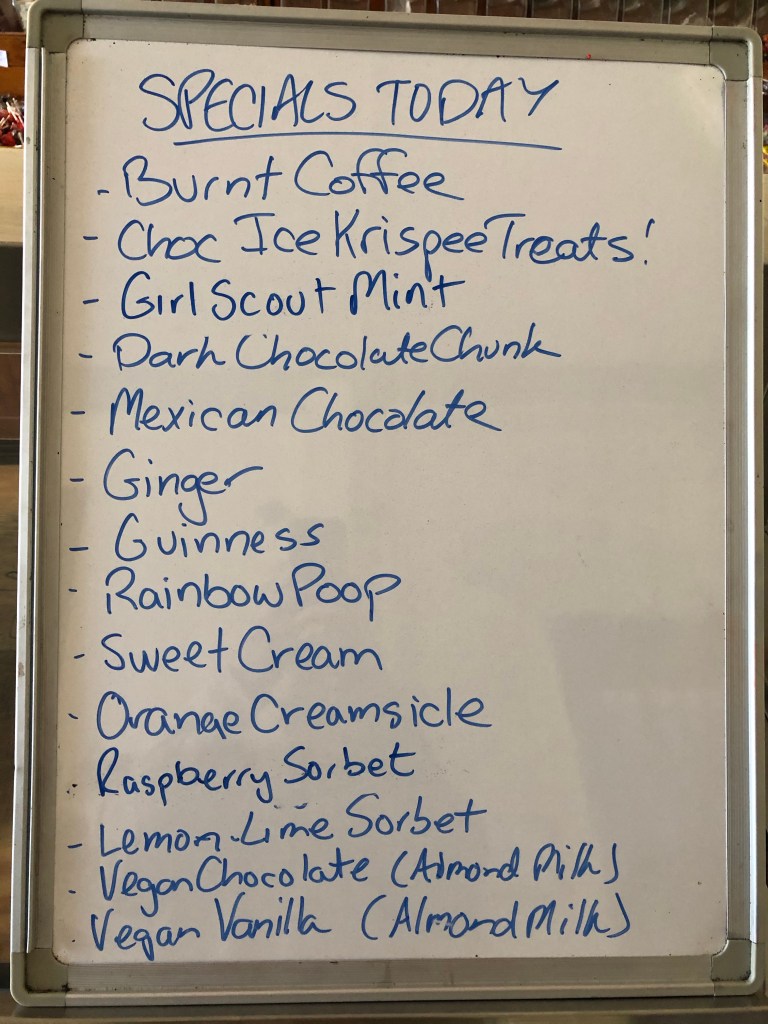 SPECIALS TODAY
- Burnt Coffee
- Choc Ice Krispee Treats!
- Girl Scout Mint
- Dark Chocolate Chunk
- Mexican Chocolate
- Ginger
- Guinness
- Rainbow Poop
- Sweet Cream
- Orange Creamsicle
- Raspberry Sorbet
- Lemon-Lime Sorbet
- Vegan Chocolate (Almond Milk)
Vegan Vanilla (Almond Milk)